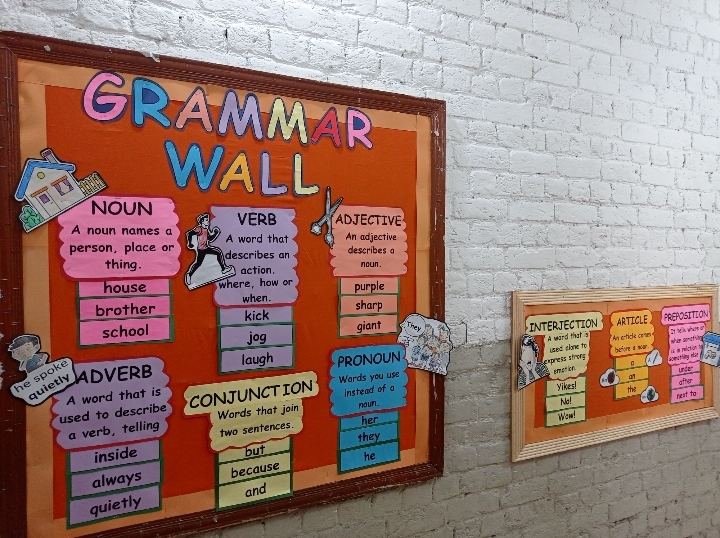 GRAMMAR
WALL
NOUN
A noun names a
person, place or
thing.
house
brother
school
VERB
A word that
describes an
action.
where, how or
when.
kick
jog
laugh
ADJECTIVE
An adjective
describes a
noun.
purple
sharp
giant
he spoke
quietly
ADVERB
A word that is
used to describe
a verb, telling
inside
always
quietly
CONJUNCTION
Words that join
two sentences.
but
because
and
PRONOUN
Words you use
instead of a
noun.
her
they
he
They
INTERJECTION
A word that is
used alone to
express strong
emotion.
Yikes!
No!
Wow!
ARTICLE
An article comes
before a noun.
a
an
the
PREPOSITION
It tells where or
when something
is in relation to
something else.
under
after
next to